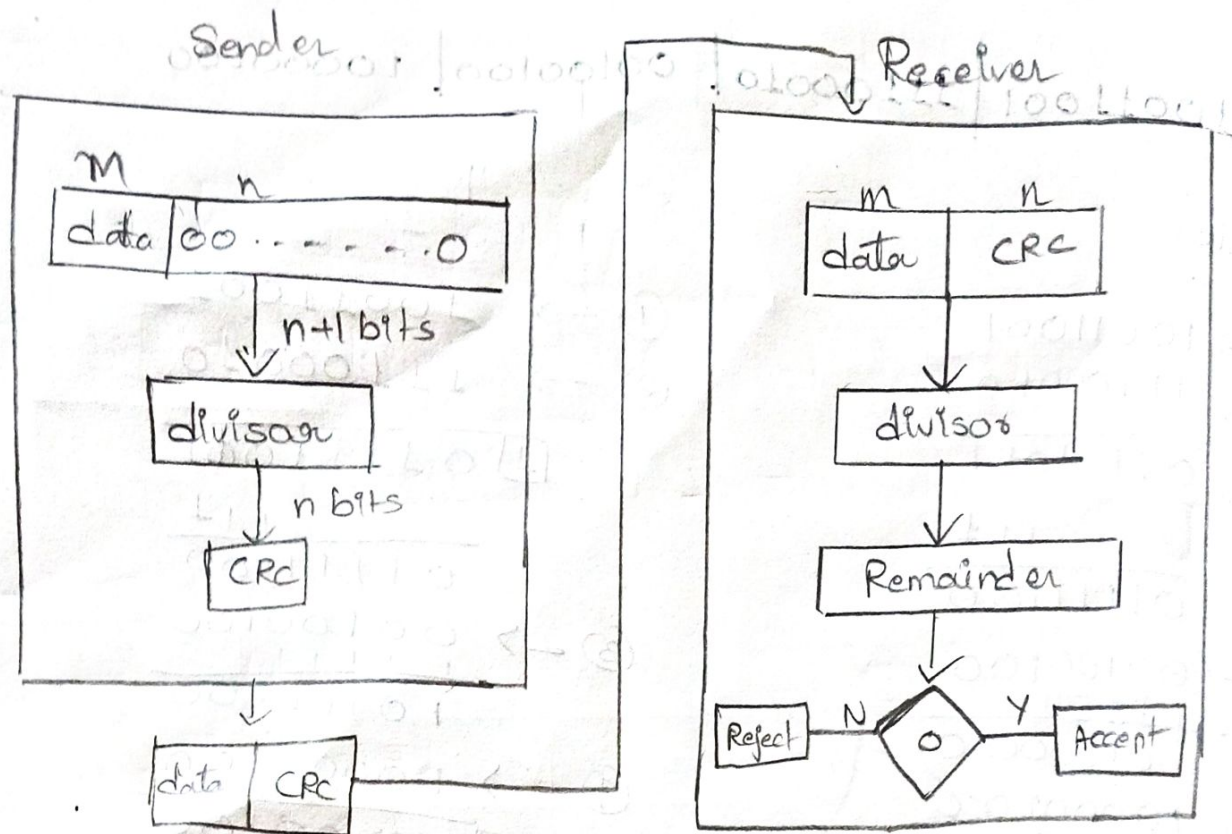 Sender
M
n
data 00 . . - - - . . 0
n+1 bits
divisar
n bits
CRC
data CRC
Receiver
m n
data CRC
divisor
Remainder
Reject N 0 Y Accept